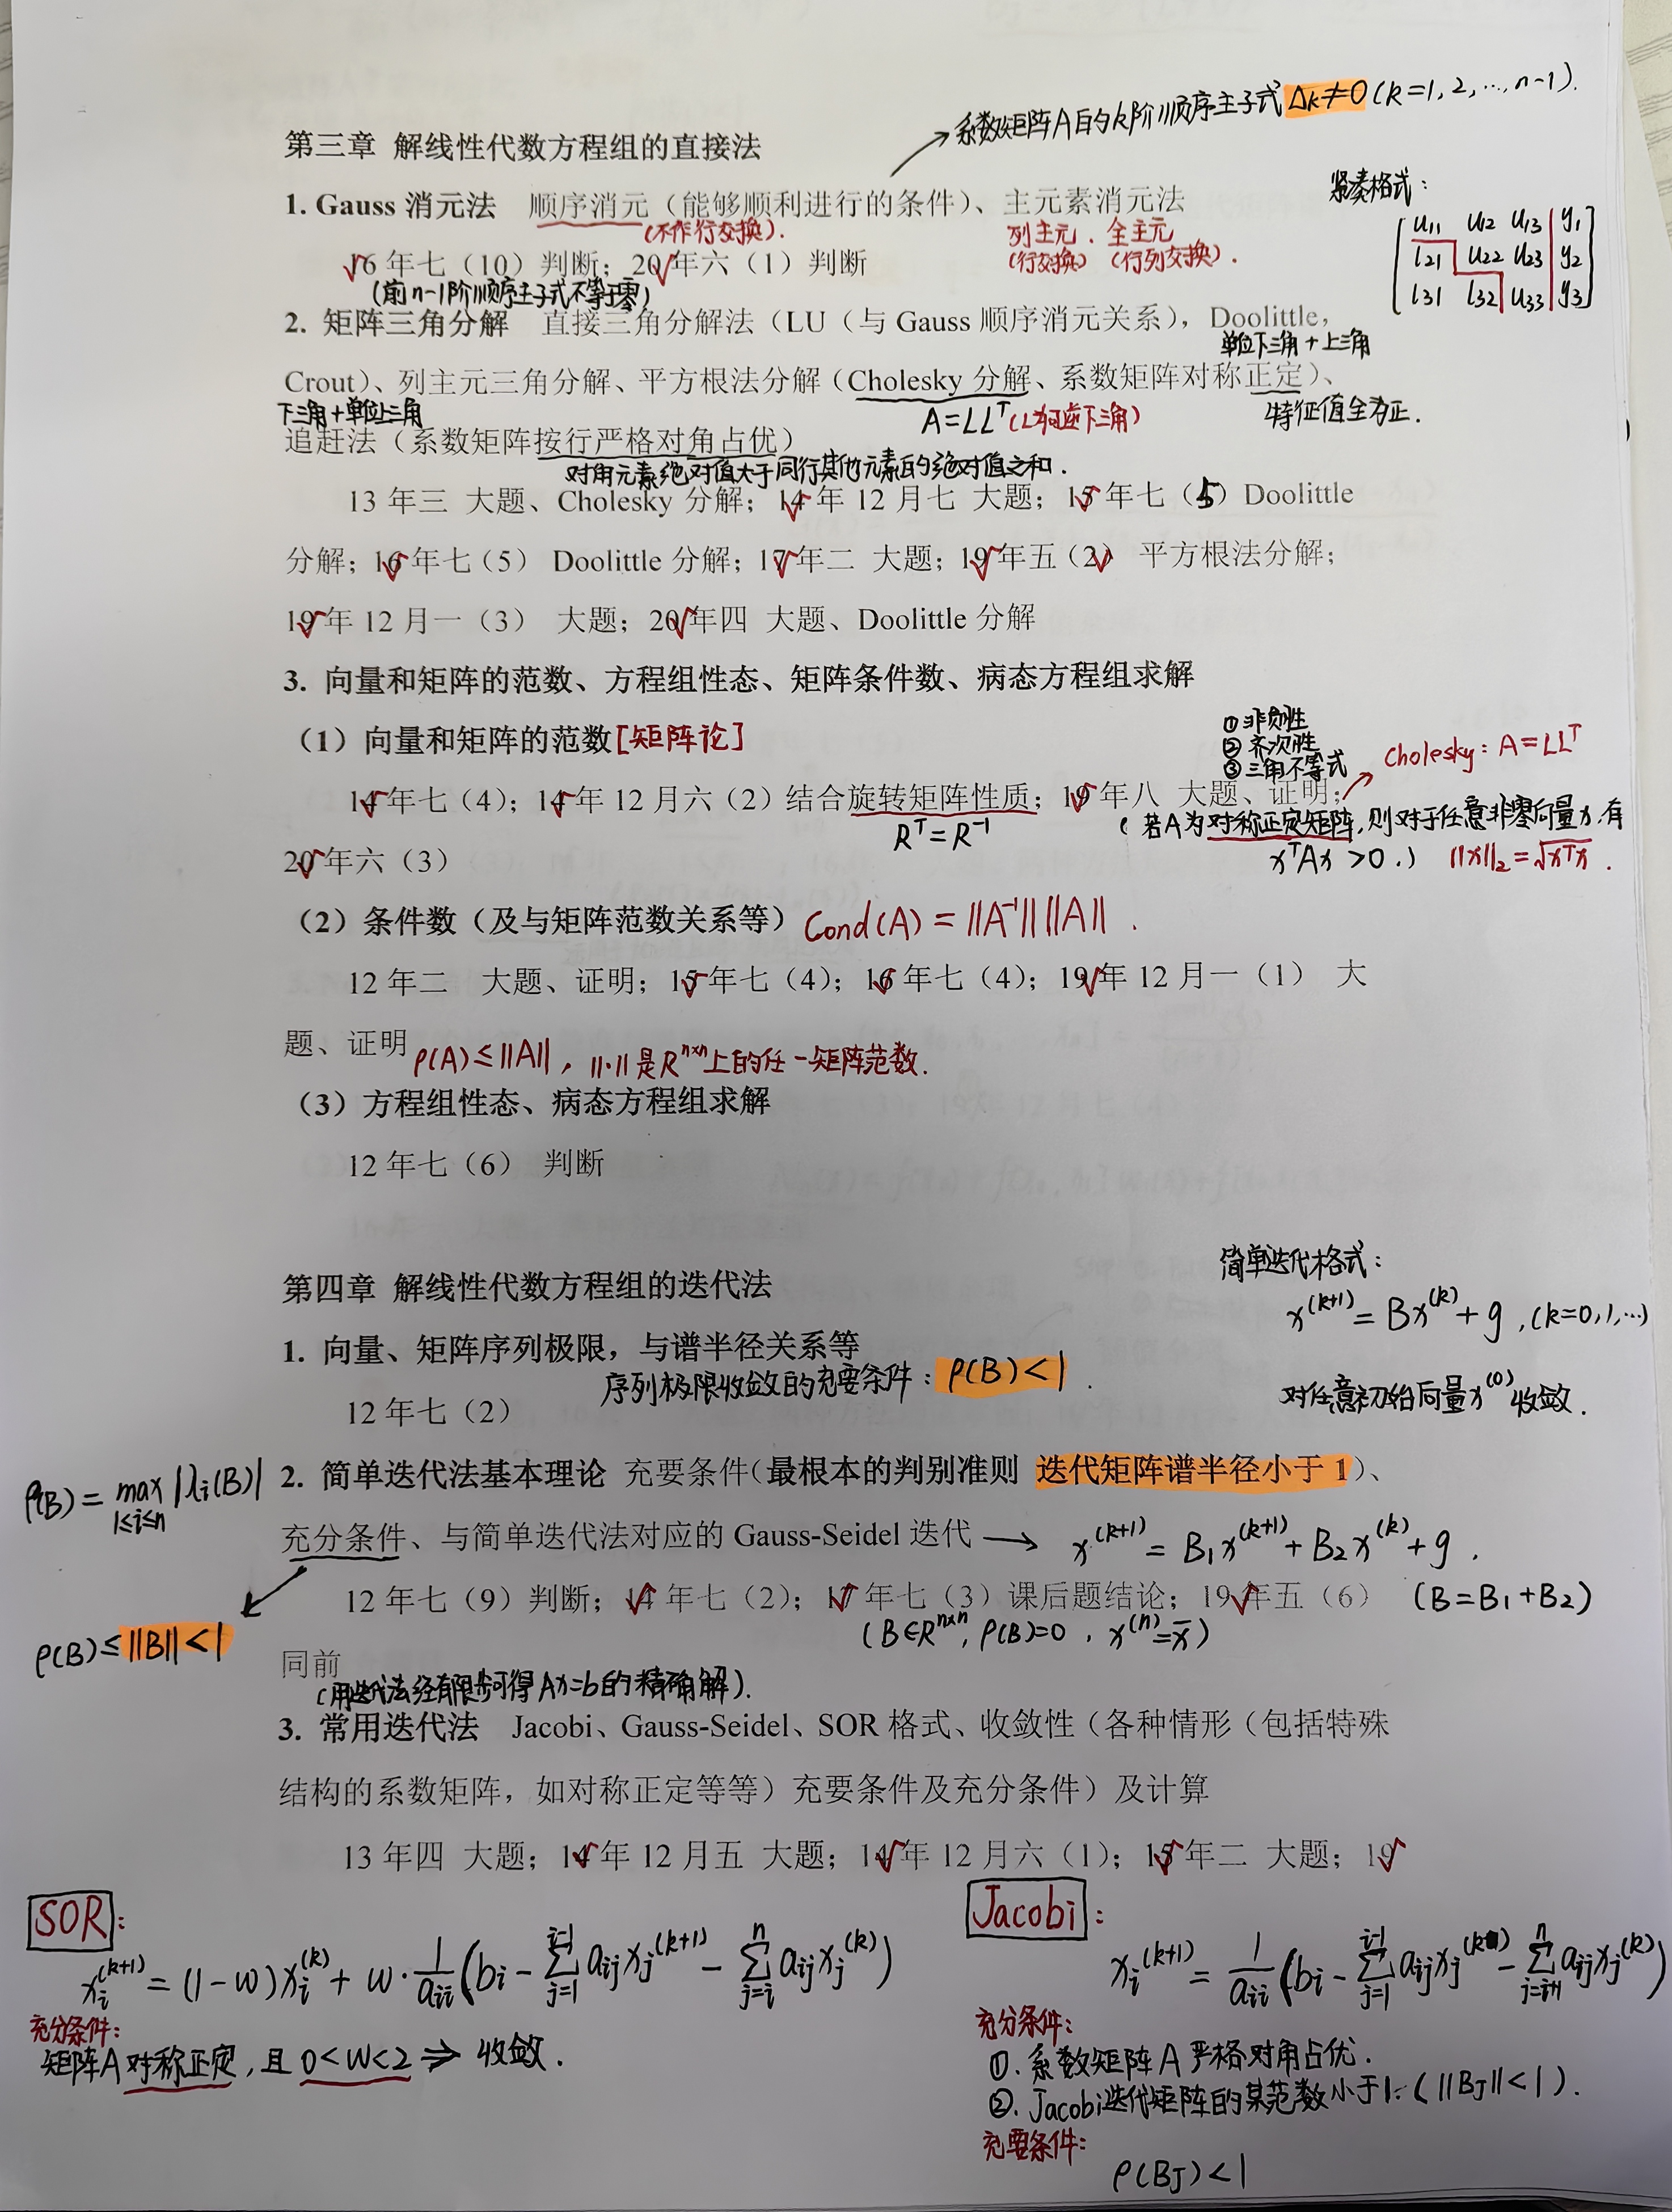 系数矩阵A的k阶顺序主子式Δk≠0(k=1,2,…,n-1).
第三章 解线性代数方程组的直接法
紧凑格式：
1. Gauss 消元法 顺序消元（能够顺利进行的条件）、主元素消元法
(不作行交换).
列主元. 全主元
(行交换) (行列交换).
u11 u12 u13 y1
l21 u22 u23 y2
l31 l32 u33 y3
16 年七（10）判断；20 年六（1）判断
(前n-1阶顺序主子式不等于零)
2. 矩阵三角分解 直接三角分解法（LU（与 Gauss 顺序消元关系），Doolittle，
单位下三角+上三角
Crout）、列主元三角分解、平方根法分解（Cholesky 分解、系数矩阵对称正定）、
下三角+单位上三角
A=LLᵀ(L为可逆下三角)
特征值全为正.
追赶法（系数矩阵按行严格对角占优）
对角元素绝对值大于同行其他元素的绝对值之和.
13 年三 大题、Cholesky 分解；14 年 12 月七 大题；15 年七（5）Doolittle
分解；16 年七（5） Doolittle 分解；17 年二 大题；19 年五（2） 平方根法分解；
19 年 12 月一（3） 大题；20 年四 大题、Doolittle 分解
3. 向量和矩阵的范数、方程组性态、矩阵条件数、病态方程组求解
①非负性
②齐次性
③三角不等式
（1）向量和矩阵的范数[矩阵论]
Cholesky：A=LLᵀ
14 年七（4）；14 年 12 月六（2）结合旋转矩阵性质；19 年八 大题、证明；
Rᵀ=R⁻¹
(若A为对称正定矩阵,则对于任意非零向量x,有
xᵀAx>0.) ||x||₂=√xᵀx.
20 年六（3）
（2）条件数（及与矩阵范数关系等）Cond(A)=||A⁻¹|| ||A||.
12 年二 大题、证明；15 年七（4）；16 年七（4）；19 年 12 月一（1） 大
题、证明 ρ(A)≤||A||, ||·||是Rⁿˣⁿ上的任一矩阵范数.
（3）方程组性态、病态方程组求解
12 年七（6） 判断
简单迭代格式：
第四章 解线性代数方程组的迭代法
x^(k+1)=Bx^(k)+g,(k=0,1,…)
1. 向量、矩阵序列极限，与谱半径关系等
序列极限收敛的充要条件：ρ(B)<1.
对任意初始向量x^(0)收敛.
12 年七（2）
ρ(B)=max|λi(B)|
1≤i≤n
2. 简单迭代法基本理论 充要条件（最根本的判别准则 迭代矩阵谱半径小于 1）、
充分条件、与简单迭代法对应的 Gauss-Seidel 迭代 → x^(k+1)=B₁x^(k+1)+B₂x^(k)+g.
12 年七（9）判断；14 年七（2）；17 年七（3）课后题结论；19 年五（6） (B=B₁+B₂)
(B∈Rⁿˣⁿ, ρ(B)=0, x^(n)=x̄)
ρ(B)≤||B||<1
同前
(用迭代法经有限步可得Ax=b的精确解).
3. 常用迭代法 Jacobi、Gauss-Seidel、SOR 格式、收敛性（各种情形（包括特殊
结构的系数矩阵，如对称正定等等）充要条件及充分条件）及计算
13 年四 大题；14 年 12 月五 大题；14 年 12 月六（1）；15 年二 大题；19
SOR：
xi^(k+1)=(1-w)xi^(k)+w·1/aii(bi-∑_{j=1}^{i-1}aijxj^(k+1)-∑_{j=i}^{n}aijxj^(k))
充分条件：
矩阵A对称正定,且0<w<2⇒收敛.
Jacobi：
xi^(k+1)=1/aii(bi-∑_{j=1}^{i-1}aijxj^(k)-∑_{j=i+1}^{n}aijxj^(k))
充分条件：
①.系数矩阵A严格对角占优.
②.Jacobi迭代矩阵的某范数小于1.(||BJ||<1).
充要条件：
ρ(BJ)<1